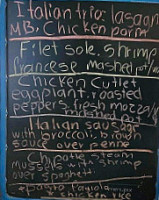 Italian trio: lasagn
MB, Chicken parm
Filet sole, shrimp
francese mashed
Chicken Cutlet
eggplant, roasted
peppers, fresh mozza
Italian sausage
with broccoli,
sauce over penne
steam
mussels with shrimp
over spaghetti
pasta fagiola
chicken rice